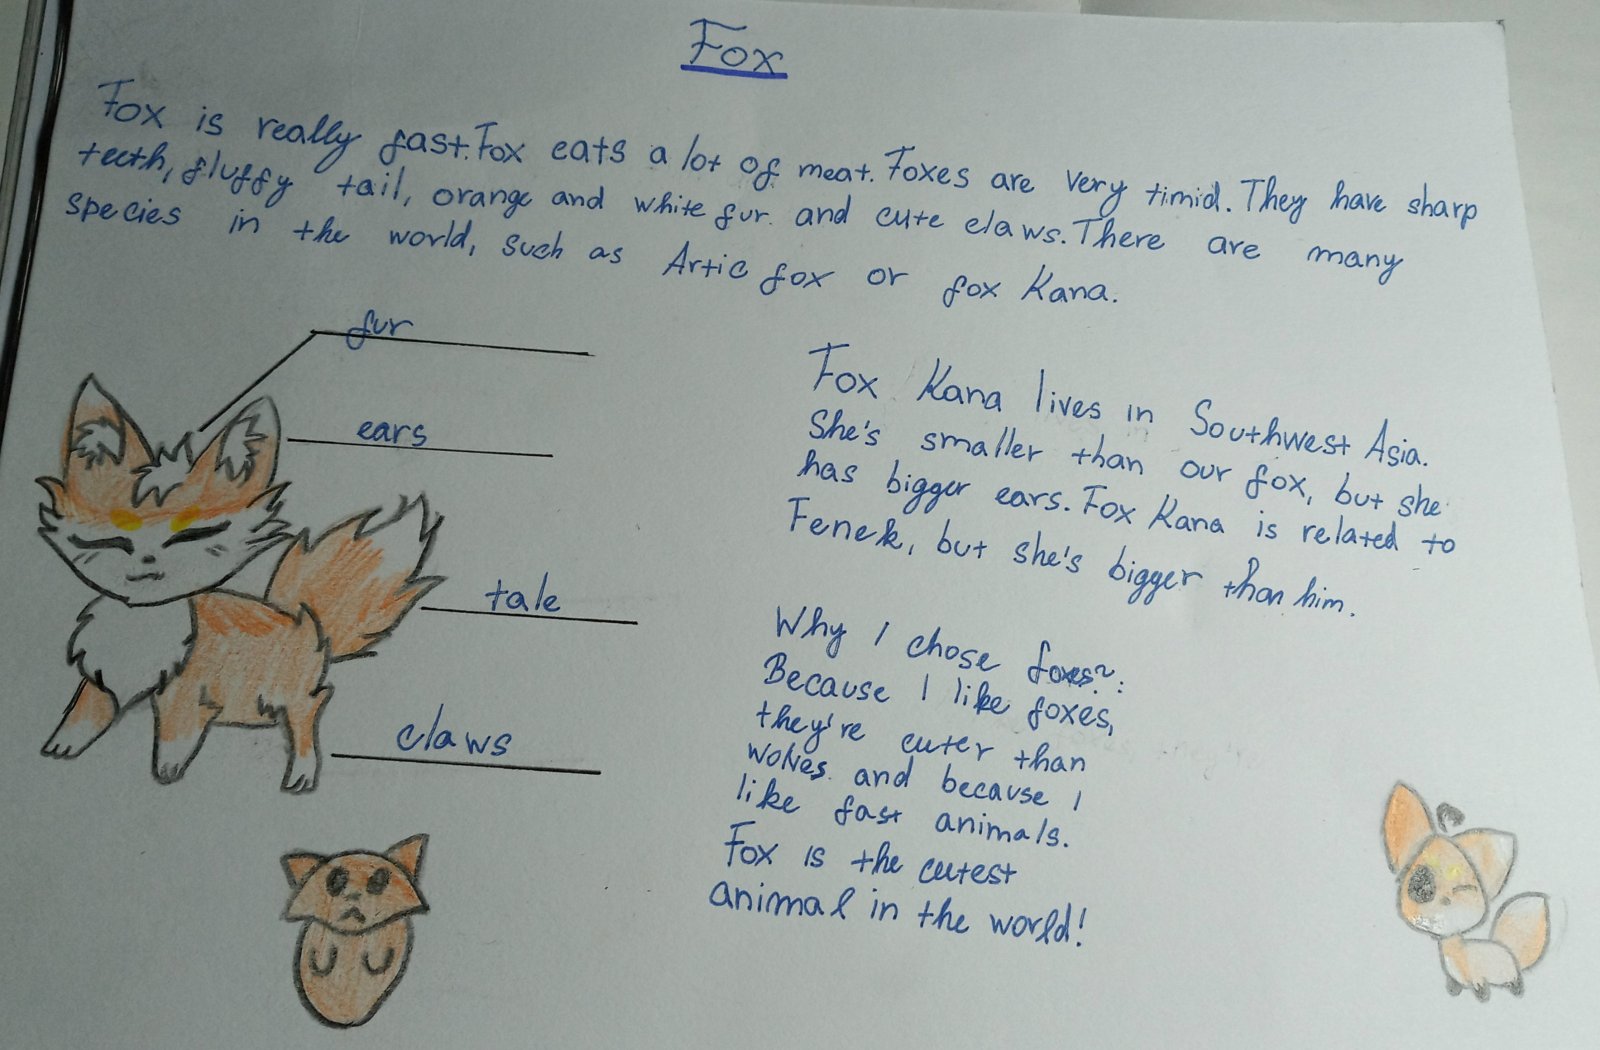 Fox
Fox is really fast. Fox eats a lot of meat. Foxes are very timid. They have sharp
teeth, fluffy tail, orange and white fur and cute claws. There are many
species in the world, such as Artic fox or fox Kana.
fur
ears
tale
claws
Fox Kana lives in Southwest Asia.
She's smaller than our fox, but she
has bigger ears. Fox Kana is related to
Fenek, but she's bigger than him.
Why I chose foxes?:
Because I like foxes,
they're cuter than
wolves and because I
like fast animals.
Fox is the cutest
animal in the world!